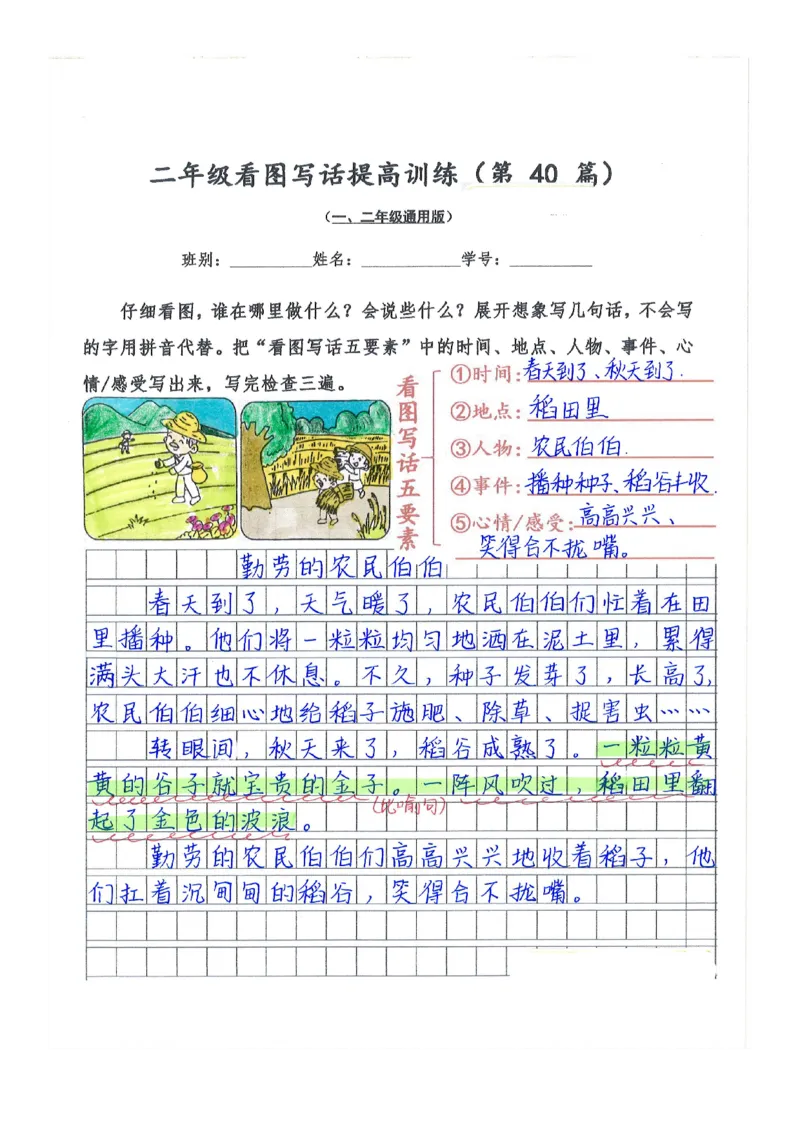 二年级看图写话提高训练（第 40 篇）
（一、二年级通用版）
班别：__________姓名：____________学号：__________
仔细看图，谁在哪里做什么？会说些什么？展开想象写几句话，不会写
的字用拼音代替。把“看图写话五要素”中的时间、地点、人物、事件、心
情/感受写出来，写完检查三遍。
看图写话五要素
①时间：春天到了、秋天到了.
②地点：稻田里
③人物：农民伯伯.
④事件：播种种子、稻谷丰收.
⑤心情/感受：高高兴兴、
笑得合不拢嘴。
勤劳的农民伯伯
春天到了，天气暖了，农民伯伯们忙着在田
里播种。他们将一粒粒均匀地洒在泥土里，累得
满头大汗也不休息。不久，种子发芽了，长高了，
农民伯伯细心地给稻子施肥、除草、捉害虫……
转眼间，秋天来了，稻谷成熟了。一粒粒黄
黄的谷子就宝贵的金子。一阵风吹过，稻田里翻
（比喻句）
起了金色的波浪。
勤劳的农民伯伯们高高兴兴地收着稻子，他
们扛着沉甸甸的稻谷，笑得合不拢嘴。